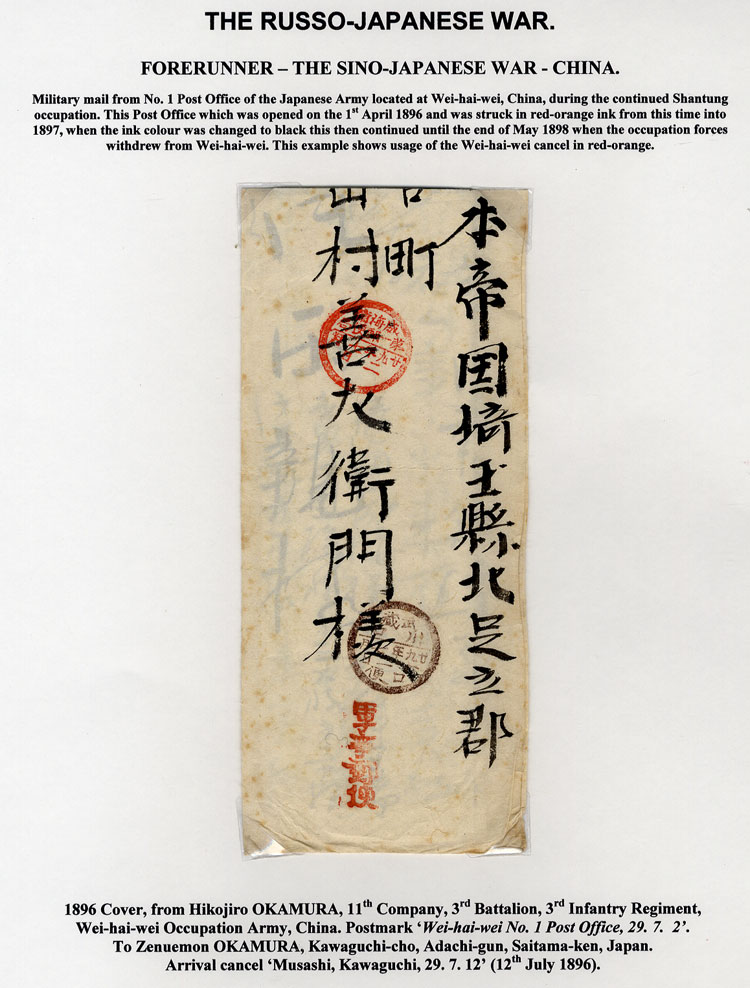 THE RUSSO-JAPANESE WAR.
FORERUNNER – THE SINO-JAPANESE WAR - CHINA.
Military mail from No. 1 Post Office of the Japanese Army located at Wei-hai-wei, China, during the continued Shantung
occupation. This Post Office which was opened on the 1st April 1896 and was struck in red-orange ink from this time into
1897, when the ink colour was changed to black this then continued until the end of May 1898 when the occupation forces
withdrew from Wei-hai-wei. This example shows usage of the Wei-hai-wei cancel in red-orange.
本帝国埼玉縣北足立郡
口町
村善左衛門様
軍事郵便
1896 Cover, from Hikojiro OKAMURA, 11th Company, 3rd Battalion, 3rd Infantry Regiment,
Wei-hai-wei Occupation Army, China. Postmark ‘Wei-hai-wei No. 1 Post Office, 29. 7. 2’.
To Zenuemon OKAMURA, Kawaguchi-cho, Adachi-gun, Saitama-ken, Japan.
Arrival cancel ‘Musashi, Kawaguchi, 29. 7. 12’ (12th July 1896).